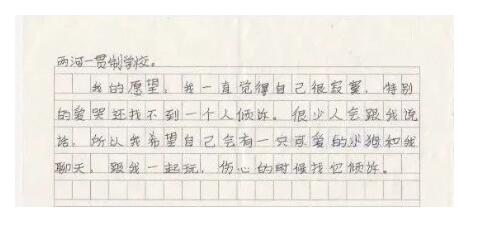 两河一贯制学校。
我的愿望,我一直觉得自己很寂寞,特别
的爱哭还找不到一个人倾诉。很少人会跟我说
话,所以我希望自己会有一只可爱的小狗和我
聊天,跟我一起玩,伤心的时候找它倾诉。